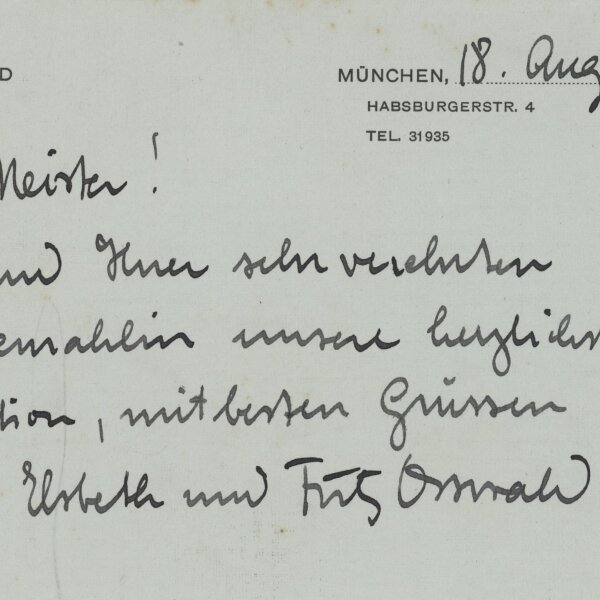 D
MÜNCHEN, 18. Aug
HABSBURGERSTR. 4
TEL. 31935
Meister!
und Ihrer sehr verehrten
emahlin unsere herzlichs
tion, mit besten Grüssen
Elsbeth und Fritz Osswald